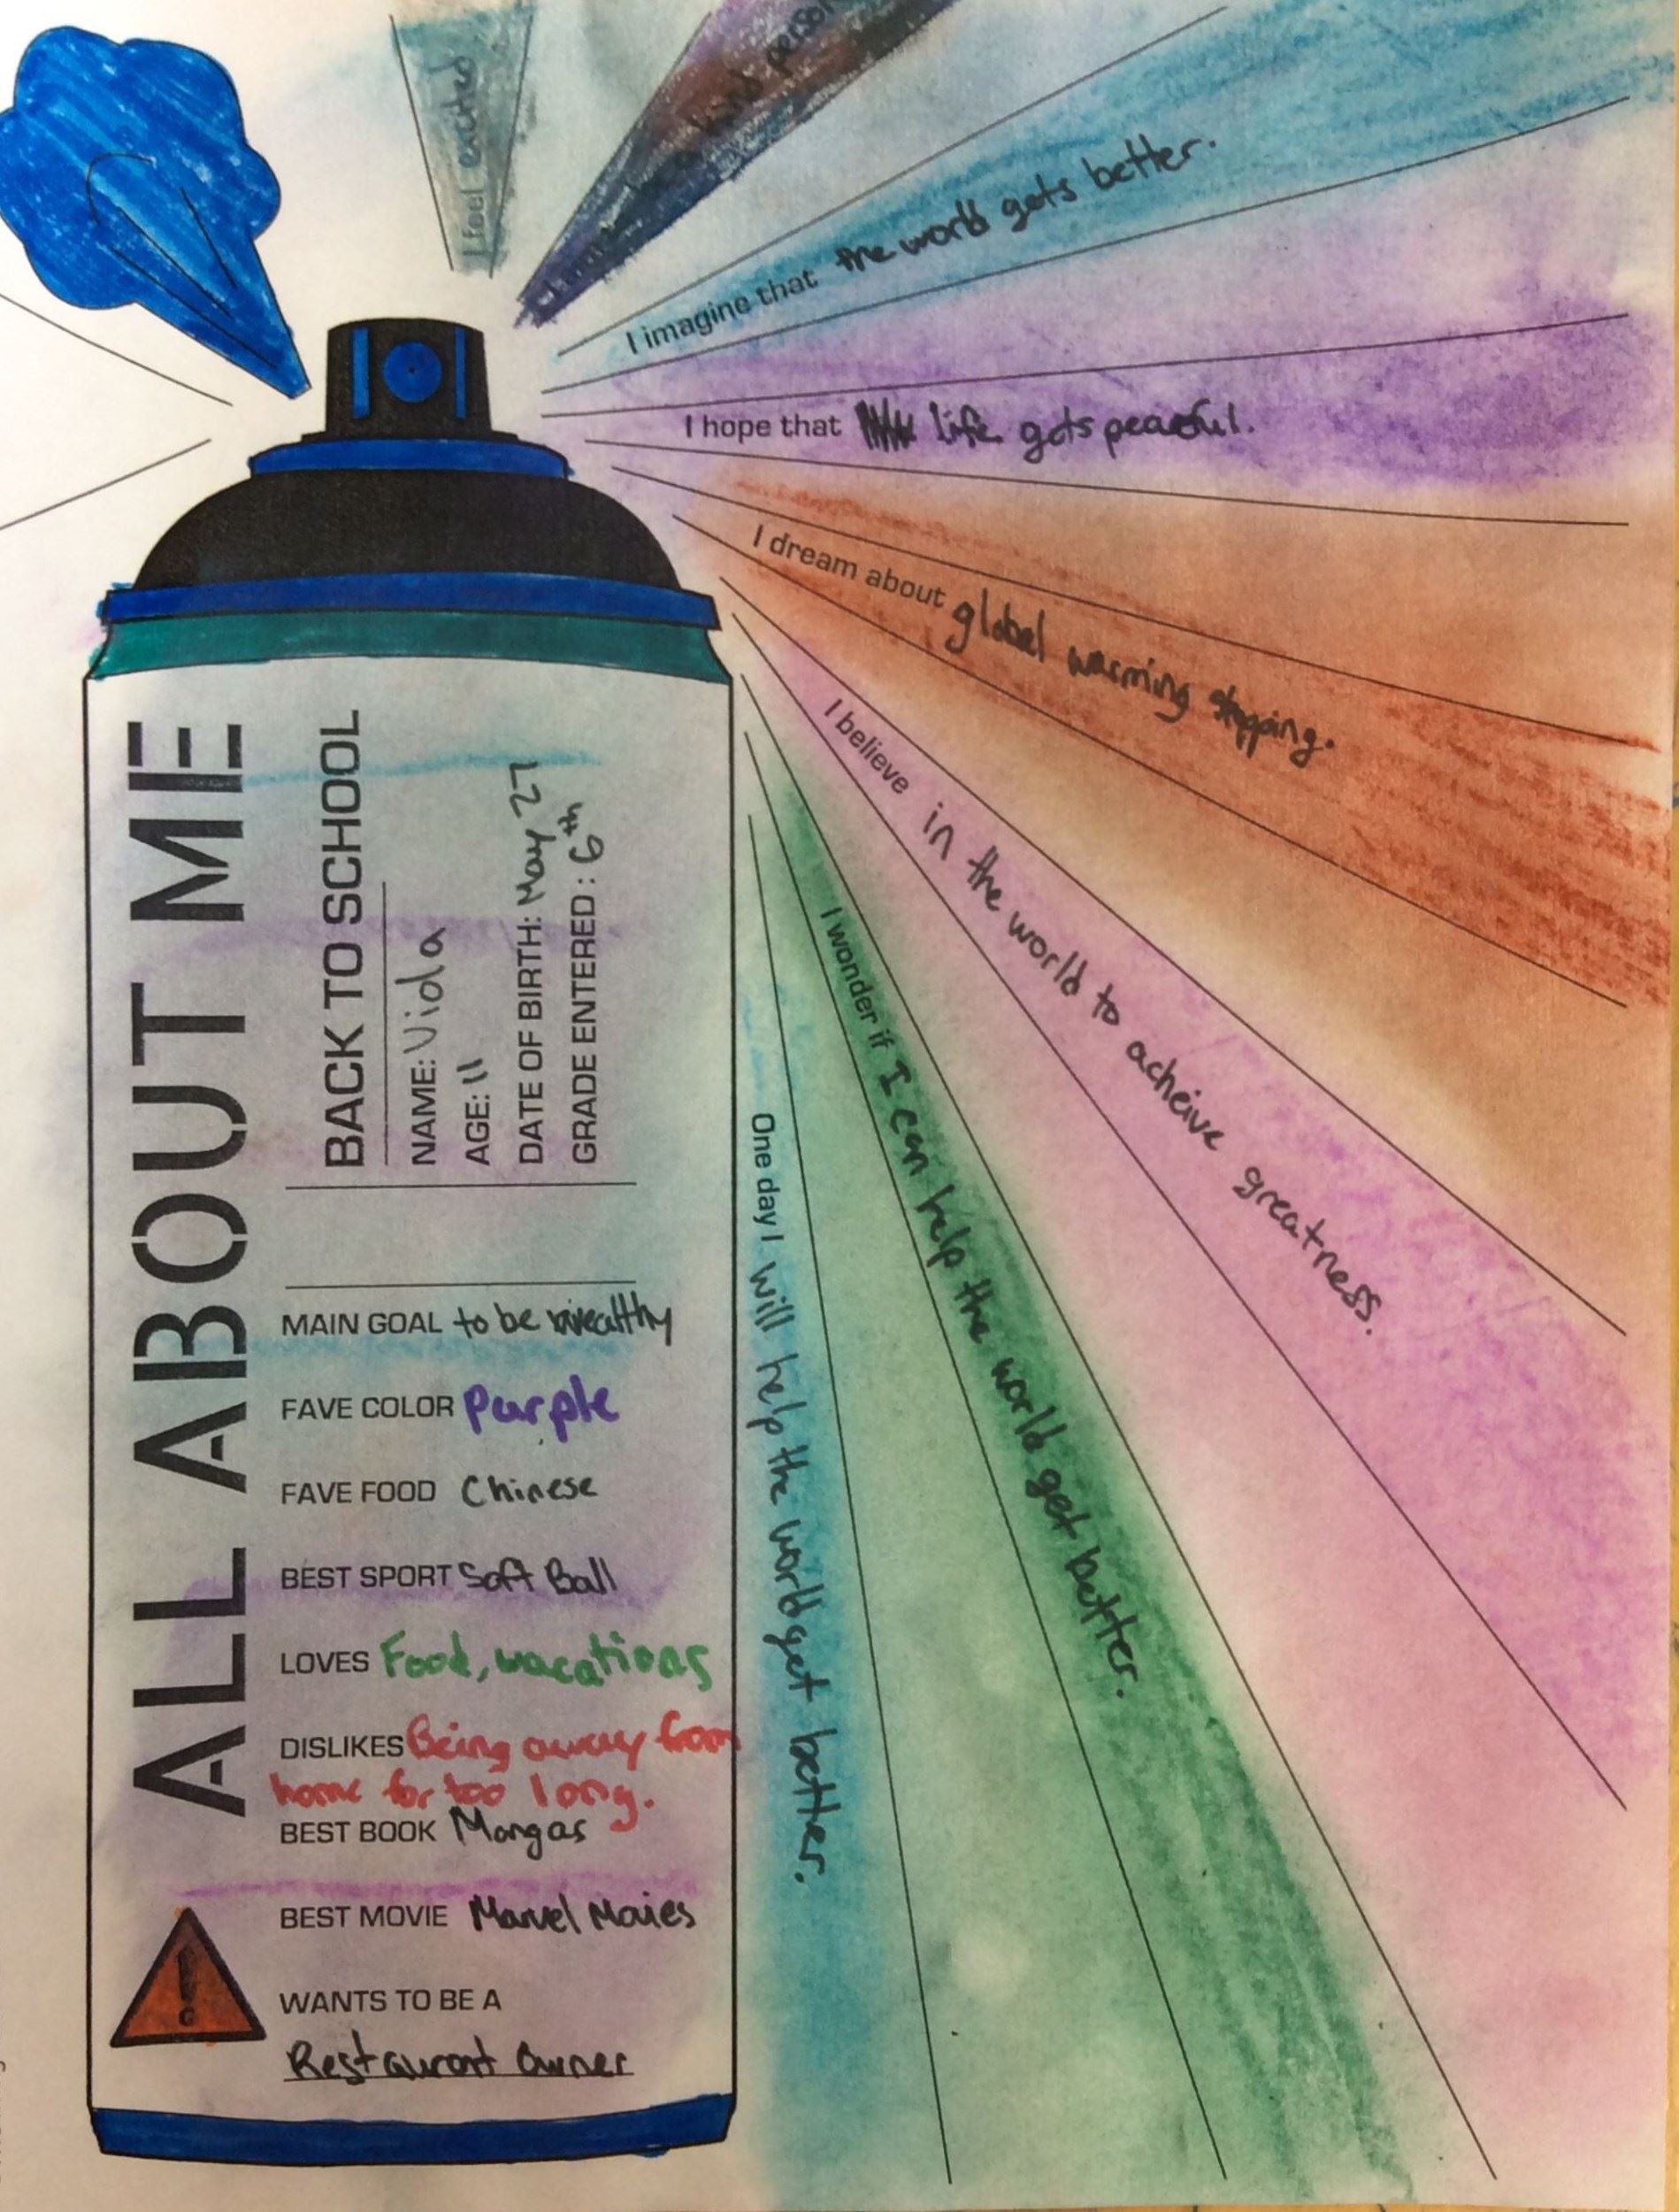 ALL ABOUT ME
BACK TO SCHOOL
NAME: Vida
AGE: 11
DATE OF BIRTH: May 27
GRADE ENTERED: 6th
MAIN GOAL to be wealthy
FAVE COLOR Purple
FAVE FOOD Chinese
BEST SPORT Soft Ball
LOVES Food, vacations
DISLIKES Being away from
home for too long.
BEST BOOK Mangas
BEST MOVIE Marvel Movies
WANTS TO BE A
Restaurant Owner
!
I feel excited
kind person
I imagine that the world gets better.
I hope that life gets peaceful.
I dream about global warming stopping.
I believe in the world to acheive greatness.
I wonder if I can help the world get better.
One day I will help the world get better.